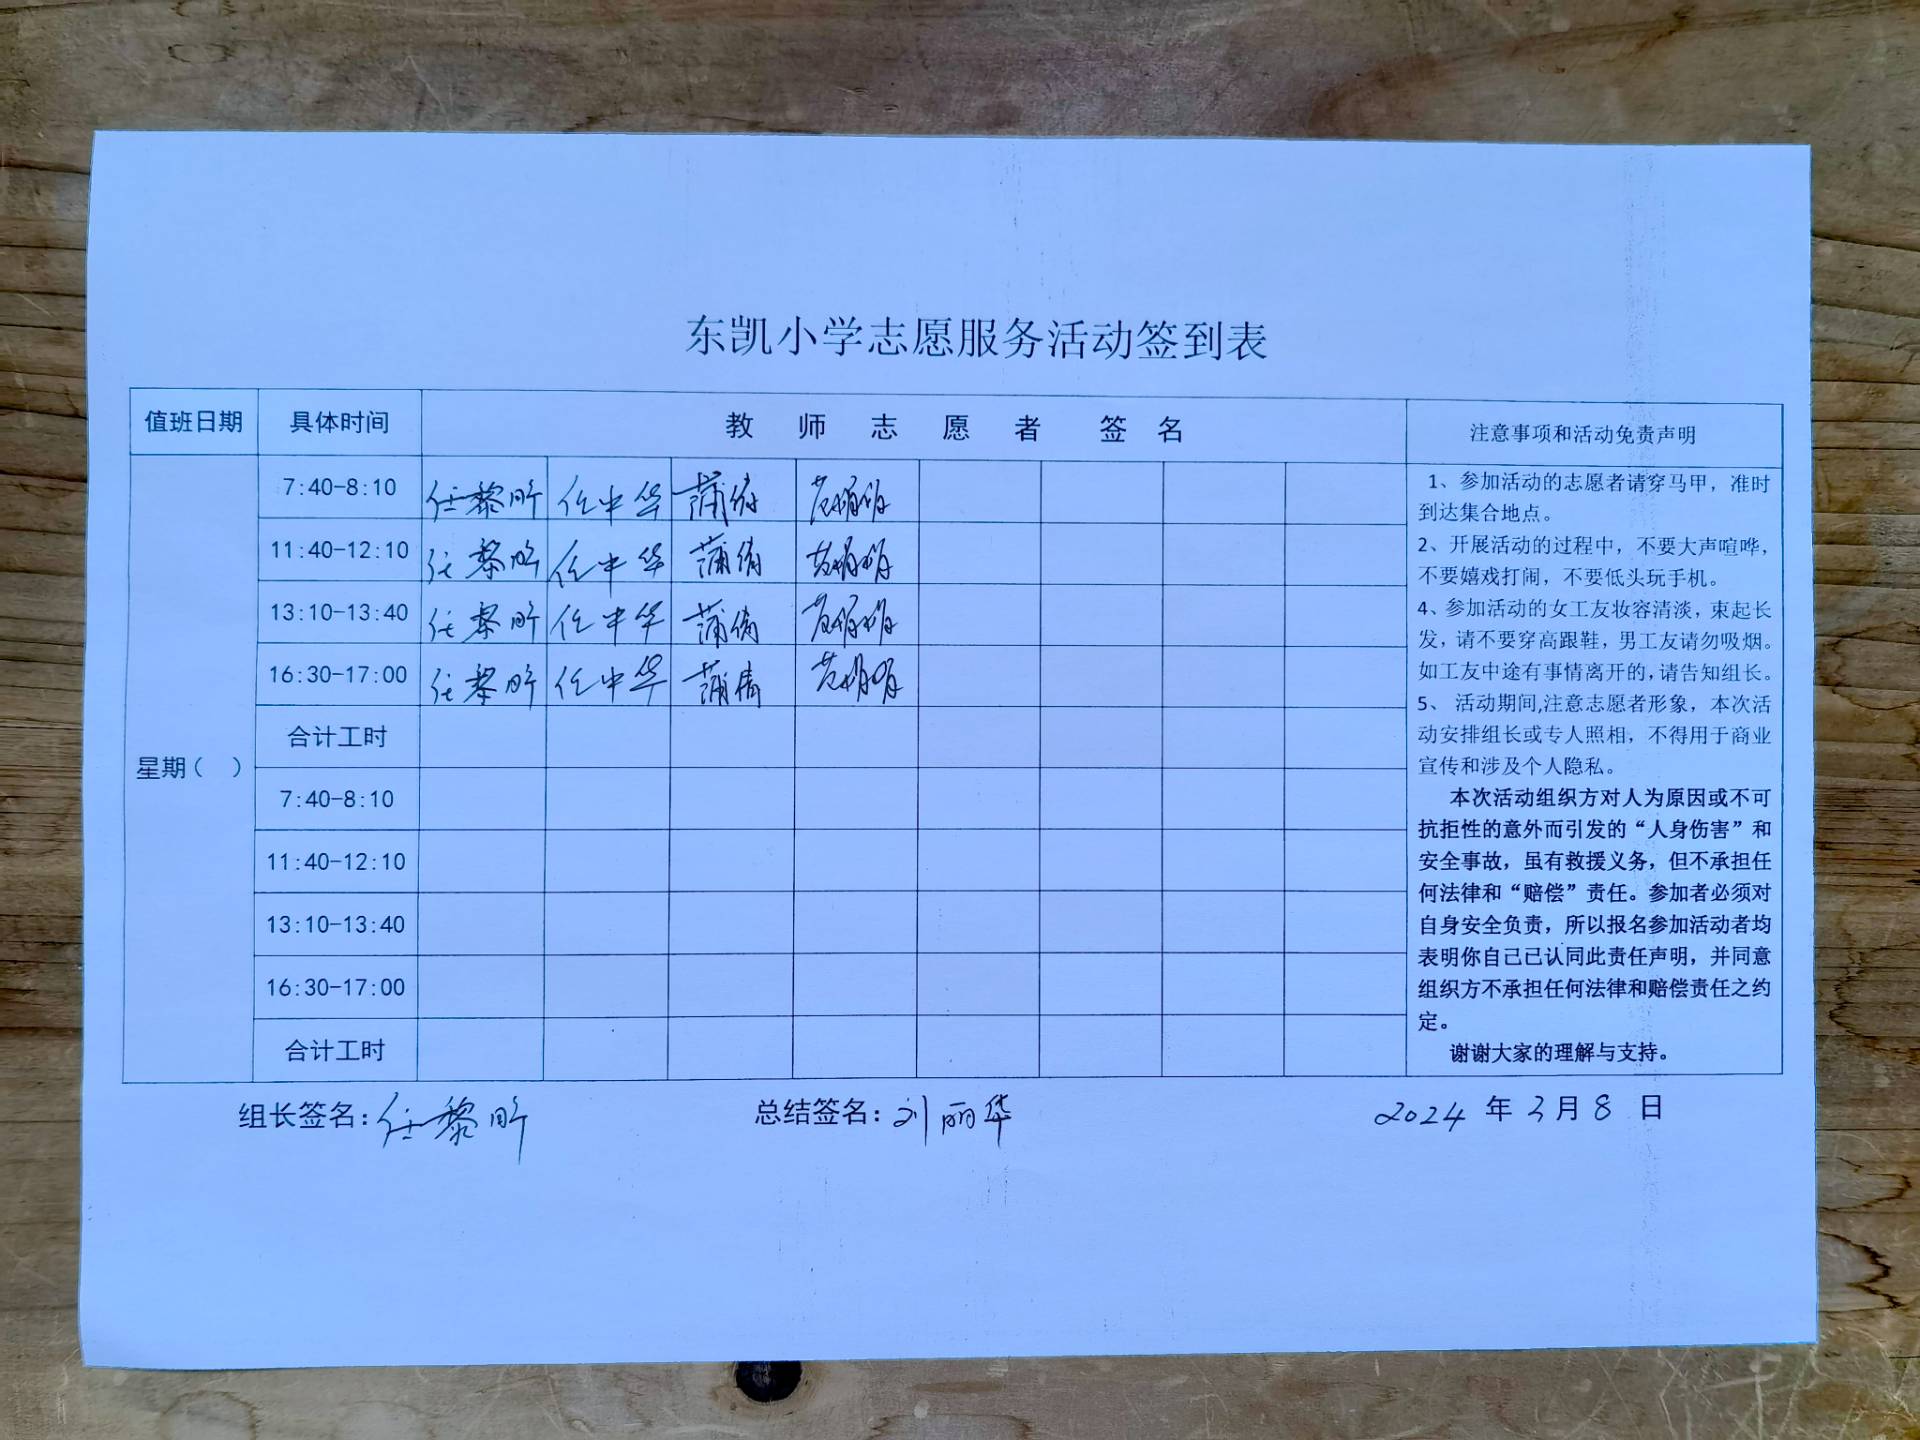 东凯小学志愿服务活动签到表
值班日期 具体时间 教师志愿者签名 注意事项和活动免责声明
星期( )
7:40-8:10 任黎昕 任中华 蒲倩
11:40-12:10 任黎昕 任中华 蒲倩
13:10-13:40 任黎昕 任中华 蒲倩
16:30-17:00 任黎昕 任中华 蒲倩
合计工时
7:40-8:10
11:40-12:10
13:10-13:40
16:30-17:00
合计工时
1、参加活动的志愿者请穿马甲，准时
到达集合地点。
2、开展活动的过程中，不要大声喧哗，
不要嬉戏打闹，不要低头玩手机。
4、参加活动的女工友妆容清淡，束起长
发，请不要穿高跟鞋，男工友请勿吸烟。
如工友中途有事情离开的,请告知组长。
5、 活动期间,注意志愿者形象，本次活
动安排组长或专人照相，不得用于商业
宣传和涉及个人隐私。
本次活动组织方对人为原因或不可
抗拒性的意外而引发的“人身伤害”和
安全事故，虽有救援义务，但不承担任
何法律和“赔偿”责任。参加者必须对
自身安全负责，所以报名参加活动者均
表明你自己已认同此责任声明，并同意
组织方不承担任何法律和赔偿责任之约
定。
谢谢大家的理解与支持。
组长签名：任黎昕 总结签名：刘丽华 2024 年 3月 8 日